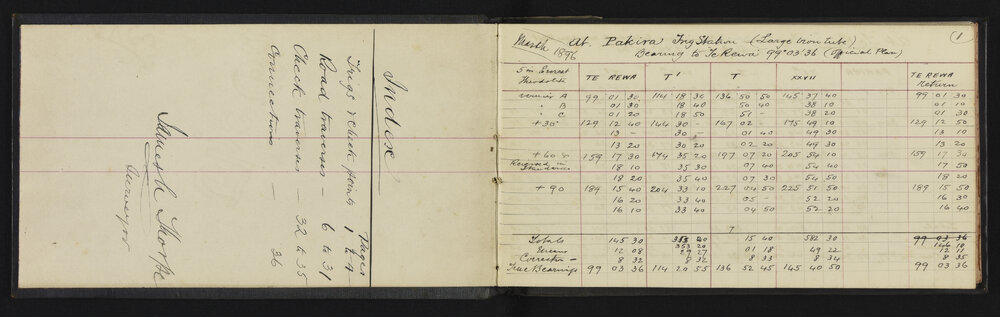 Index
Pages
Trigs & check points 1 to 4
Road traverses - 6 to 31
Check traverses - 32 to 35
Connections 36
James H Thorpe
Surveyor
(1)
March 1896 At Pakira Trig Station (Large Iron tube)
Bearing to Te Rewa 99° 03' 36 (Official Plan)
5 in Everest Theodolite TE REWA T' T XXVII TE REWA Return
Vernier A 99 01 30 114 18 30 136 50 50 145 37 40 99 01 30
" B 01 30 18 40 50 40 38 10 01 10
" C 01 20 18 50 51 - 38 20 01 30
+ 30° 129 12 40 144 30 - 167 02 - 175 49 10 129 12 50
13 - 30 - 01 40 49 30 13 10
13 20 30 20 02 20 49 30 13 20
+ 60 & 159 17 30 174 35 20 197 07 20 205 54 10 159 17 30
Reversed in Standards 18 10 35 30 07 40 54 40 17 50
18 20 35 40 07 30 54 50 18 20
+ 90 189 15 40 204 33 10 227 04 50 225 51 50 189 15 50
16 20 33 40 05 - 52 20 16 30
16 10 33 40 04 50 52 20 16 40
7
Totals 145 30 353 20 15 40 582 30 146 10
Mean 12 08 29 27 01 18 49 22 12 11
Correction - 8 32 8 32 8 33 8 34 8 35
True Bearings 99 03 36 114 20 55 136 52 45 145 40 50 99 03 36